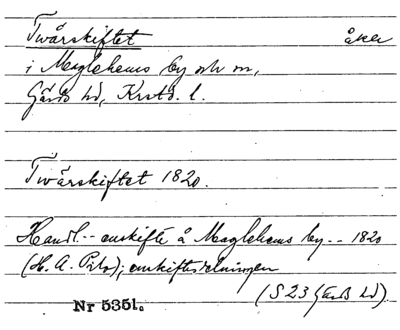 Twärskiftet åker
i Maglehems by och sn,
Gärds hd, Krstd. l.
Twärskiftet 1820.
Handl.-- enskifte å Maglehems by -- 1820
(H. A. ); enskiftesdelningen
(S 23 Gärds hd).
Nr 5351.